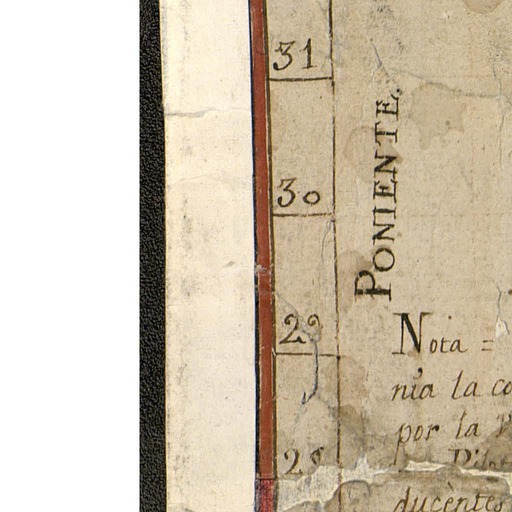 31
30
29
PONIENTE.
Nota =
nia la co
por la
ducèntes